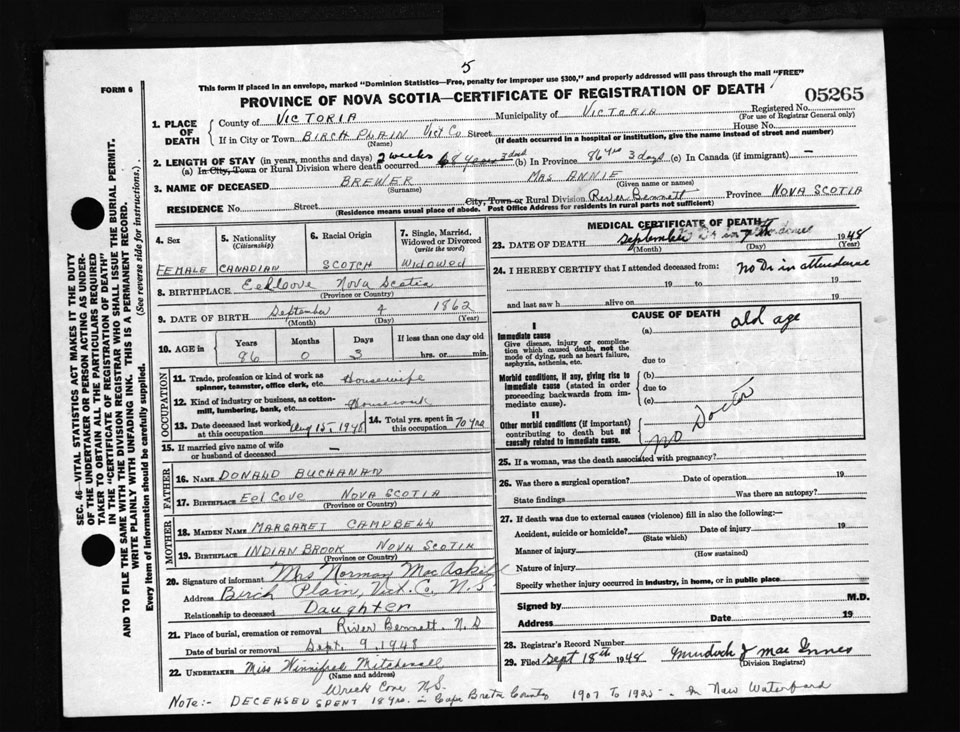 5
This form if placed in an envelope, marked "Dominion Statistics—Free, penalty for improper use $300," and properly addressed will pass through the mail "FREE"
FORM 6
PROVINCE OF NOVA SCOTIA—CERTIFICATE OF REGISTRATION OF DEATH
05265
SEC. 46—VITAL STATISTICS ACT MAKES IT THE DUTY
OF THE UNDERTAKER OR PERSON ACTING AS UNDER-
TAKER TO OBTAIN ALL THE PARTICULARS REQUIRED
IN THE "CERTIFICATE OF REGISTRATION OF DEATH"
AND TO FILE THE SAME WITH THE DIVISION REGISTRAR WHO SHALL ISSUE THE BURIAL PERMIT.
WRITE PLAINLY WITH UNFADING INK. THIS IS A PERMANENT RECORD.
Every item of information should be carefully supplied. (See reverse side for instructions.)
1. PLACE OF DEATH
County of VICTORIA Municipality of VICTORIA Registered No.
(For use of Registrar General only)
If in City or Town BIRCH PLAIN Vict Co Street House No.
(Name) (If death occurred in a hospital or institution, give the name instead of street and number)
2. LENGTH OF STAY (in years, months and days) 2 weeks
(a) In City, Town or Rural Division where death occurred 68 years 3 days (b) In Province 86 yrs 3 days (c) In Canada (if immigrant) —
3. NAME OF DECEASED BREWER MRS ANNIE
(Surname) (Given name or names)
RESIDENCE No. Street City, Town or Rural Division River Bennett Province NOVA SCOTIA
(Residence means usual place of abode. Post Office Address for residents in rural parts not sufficient)
4. Sex
FEMALE
5. Nationality
(Citizenship)
CANADIAN
6. Racial Origin
SCOTCH
7. Single, Married, Widowed or Divorced
(write the word)
WIDOWED
8. BIRTHPLACE Eel Cove Nova Scotia
(Province or Country)
9. DATE OF BIRTH September 4 1862
(Month) (Day) (Year)
10. AGE in Years Months Days If less than one day old
86 0 3 hrs. or min.
OCCUPATION
11. Trade, profession or kind of work as
spinner, teamster, office clerk, etc. Housewife
12. Kind of industry or business, as cotton-
mill, lumbering, bank, etc. Housework
13. Date deceased last worked
at this occupation Aug 15, 1948
14. Total yrs. spent in
this occupation 70 yrs
15. If married give name of wife
or husband of deceased —
FATHER
16. NAME DONALD BUCHANAN
17. BIRTHPLACE EEL COVE NOVA SCOTIA
(Province or Country)
MOTHER
18. MAIDEN NAME MARGARET CAMPBELL
19. BIRTHPLACE INDIAN BROOK NOVA SCOTIA
(Province or Country)
20. Signature of informant Mrs Norman MacAskill
Address Birch Plain, Vict. Co, N.S
Relationship to deceased Daughter
21. Place of burial, cremation or removal River Bennett. N.S
Date of burial or removal Sept. 9, 1948
22. UNDERTAKER Miss Winnifred
(Name and address)
Wreck Cove N.S.
MEDICAL CERTIFICATE OF DEATH
23. DATE OF DEATH September 7 1948
(Month) (Day) (Year)
24. I HEREBY CERTIFY that I attended deceased from: No Dr in attendance
19 to 19
and last saw h alive on 19
CAUSE OF DEATH
I
Immediate cause
Give disease, injury or complica-
tion which caused death, not the
mode of dying, such as heart failure,
asphyxia, asthenia, etc.
(a) old age
due to
Morbid conditions, if any, giving rise to
immediate cause (stated in order
proceeding backwards from im-
mediate cause).
(b)
due to
(c)
II
Other morbid conditions (if important)
contributing to death but not
causally related to immediate cause.
No Doctor
25. If a woman, was the death associated with pregnancy?
26. Was there a surgical operation? Date of operation 19
State findings Was there an autopsy?
27. If death was due to external causes (violence) fill in also the following:—
Accident, suicide or homicide? Date of injury 19
(State which)
Manner of injury
(How sustained)
Nature of injury
Specify whether injury occurred in industry, in home, or in public place
Signed by M.D.
Address Date 19
28. Registrar's Record Number
29. Filed Sept 18th 1948 Murdoch J Mac Innes
(Division Registrar)
Note:- DECEASED SPENT 18 yrs. in Cape Breton County 1907 to 1925 - In New Waterford